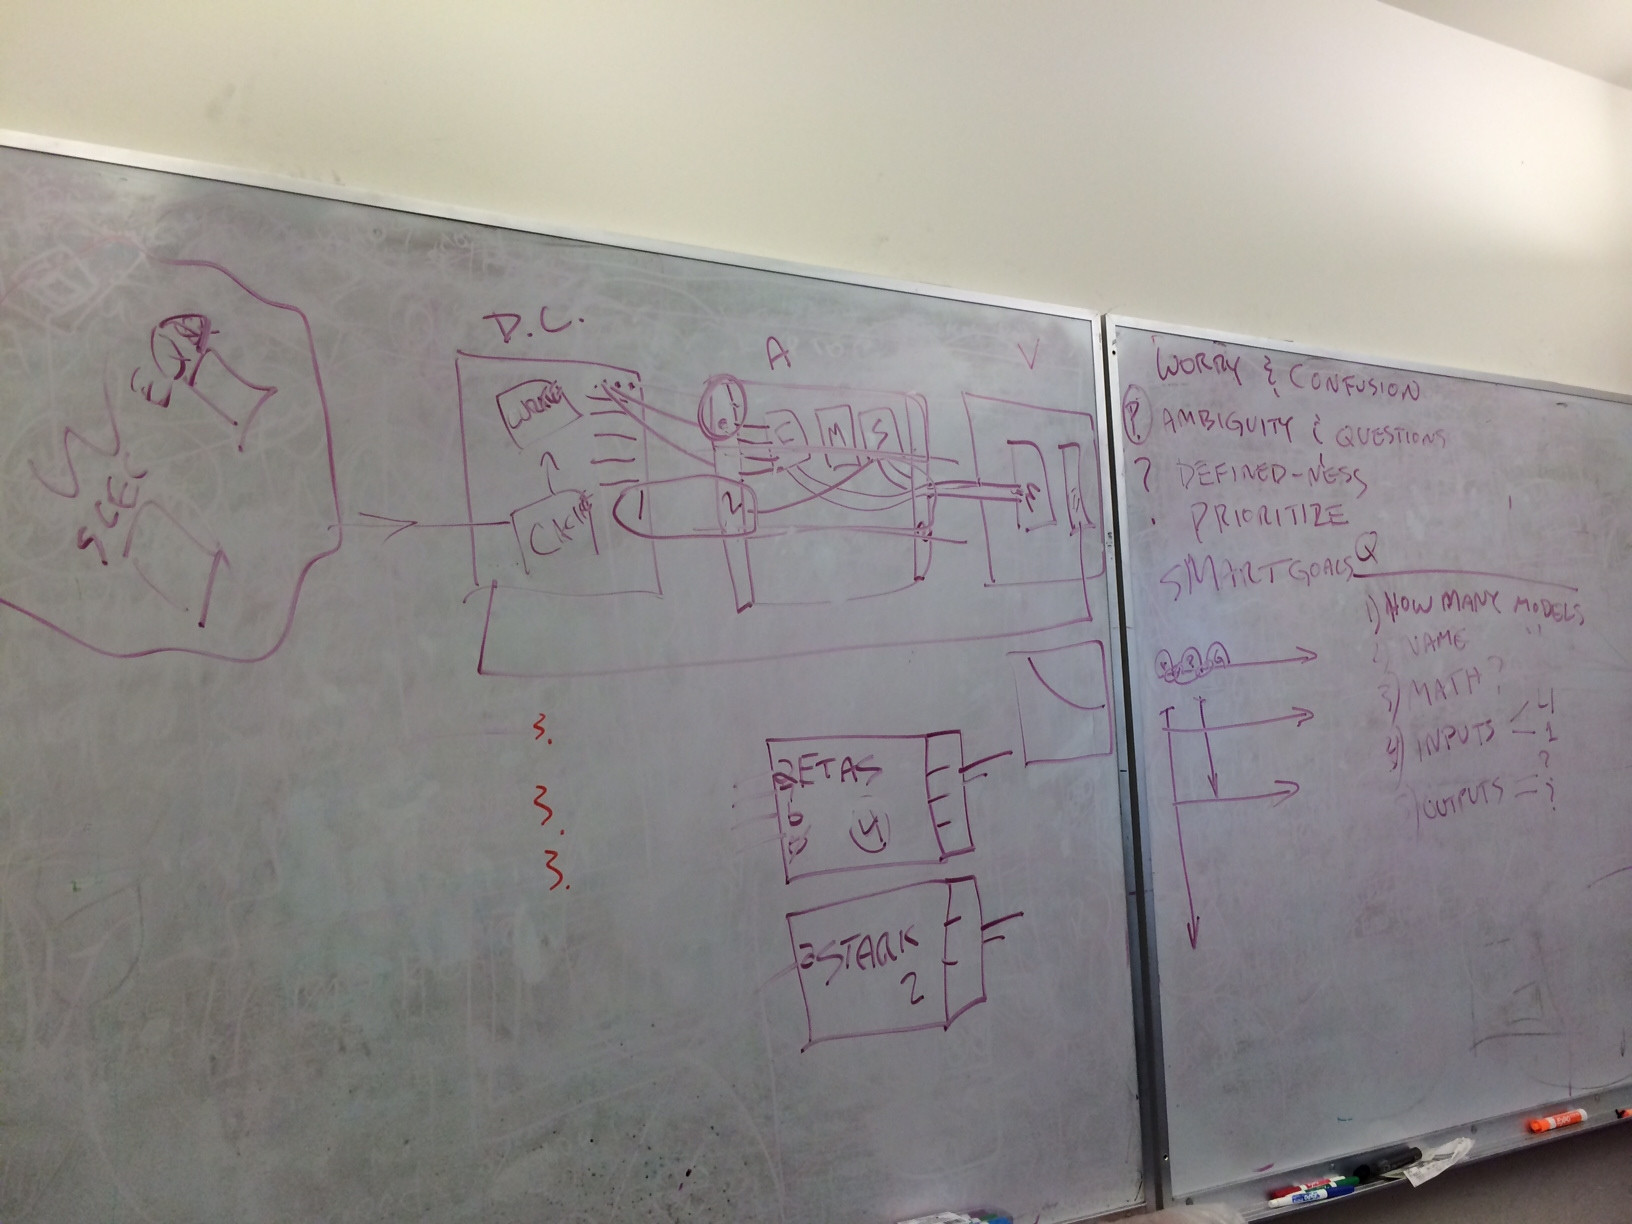 D.C.
A
V
SCEC
E
M
S
1
2
3.
3.
3.
ETAS
4
STARK
2
WORRY & CONFUSION
? AMBIGUITY & QUESTIONS
? DEFINED-NESS
. PRIORITIZE
SMART GOALS
Q
1) HOW MANY MODELS
2) NAME "
3) MATH?
4) INPUTS < 4
1
?
5) OUTPUTS = ?